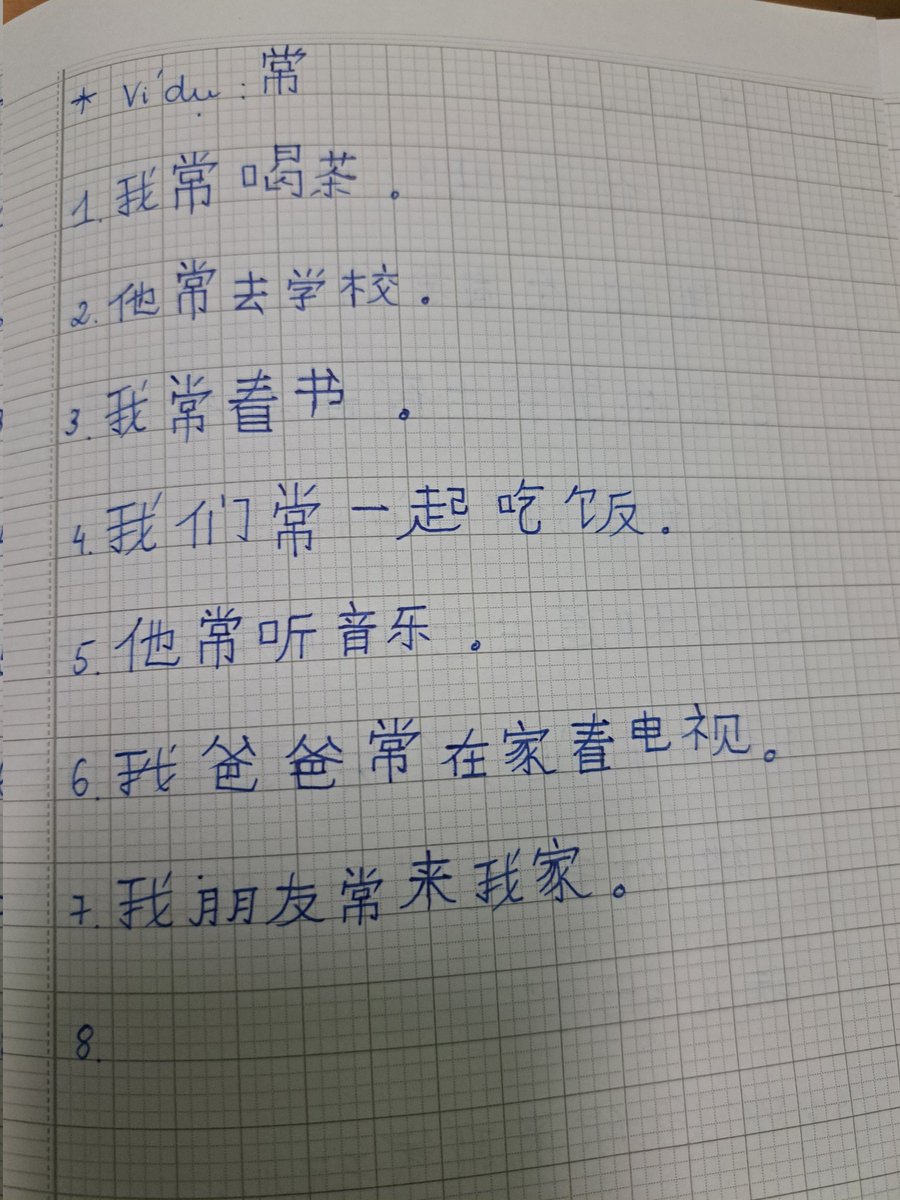 * Ví dụ: 常
1. 我常喝茶。
2. 他常去学校.
3. 我常看书。
4. 我们常一起吃饭.
5. 他常听音乐。
6. 我爸爸常在家看电视。
7. 我朋友常来我家。
8.